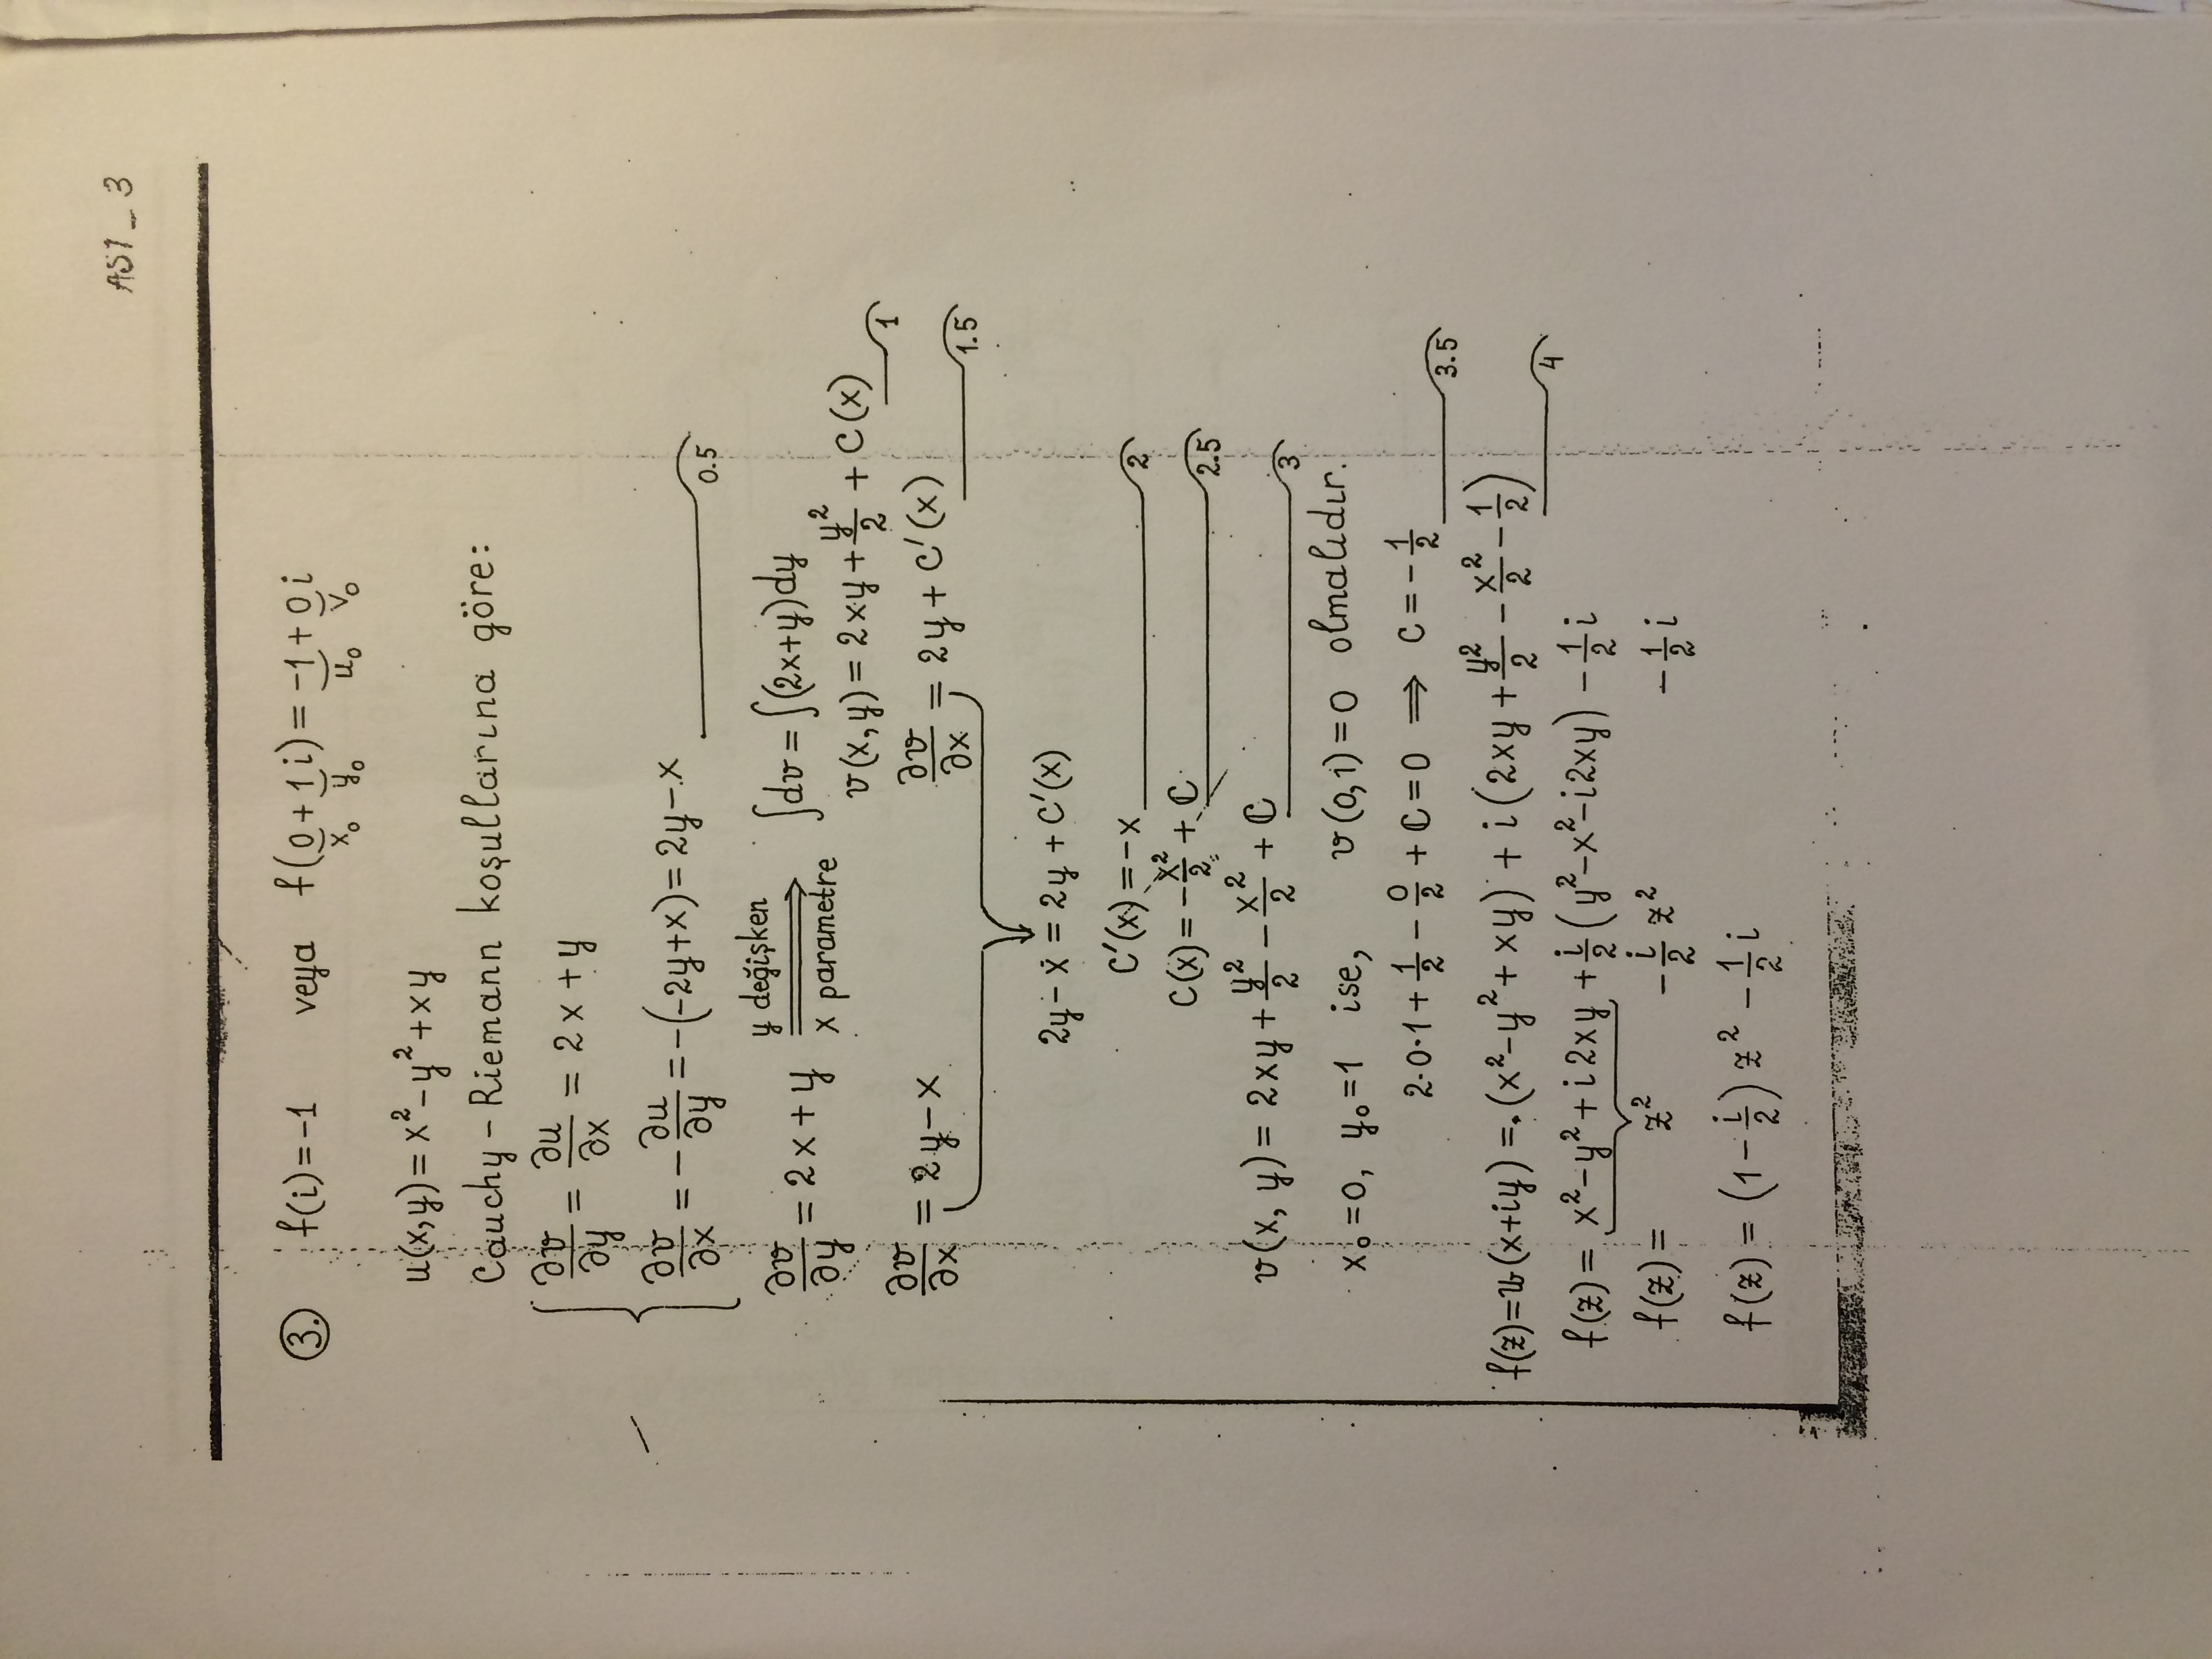 AS1_3
3. f(i)=-1 veya f(0+1i)=-1+0i
x₀ y₀ u₀ v₀
u(x,y)=x²-y²+xy
Cauchy-Riemann koşullarına göre:
∂v/∂y = ∂u/∂x = 2x+y
∂v/∂x = -∂u/∂y = -(-2y+x) = 2y-x 0.5
∂v/∂y = 2x+y y değişken x parametre ⟹ ∫dv = ∫(2x+y)dy
v(x,y) = 2xy + y²/2 + C(x) 1
∂v/∂x = 2y-x ∂v/∂x = 2y+C'(x) 1.5
2y-x = 2y+C'(x)
C'(x) = -x 2
C(x) = -x²/2 + C 2.5
v(x, y) = 2xy + y²/2 - x²/2 + C 3
x₀=0, y₀=1 ise, v(0,1)=0 olmalıdır.
2·0·1 + 1/2 - 0/2 + C = 0 ⟹ C = -1/2 3.5
f(z)=w(x+iy) = (x²-y²+xy) + i(2xy + y²/2 - x²/2 - 1/2) 4
f(z) = x²-y²+i2xy + i/2 (y²-x²-i2xy) - 1/2 i
f(z) = z² - i/2 z² - 1/2 i
f(z) = (1 - i/2) z² - 1/2 i